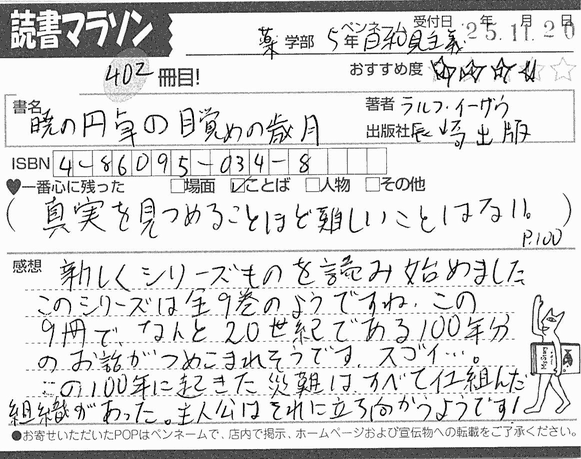 読書マラソン
薬学部 5年 ペンネーム 日和見主義 受付日 年 月 日 25.11.20
402冊目! おすすめ度
書名 暁の円卓 の 目覚めの歳月
著者 ラルフ・イーザウ
出版社 長崎出版
ISBN 4-86095-034-8
♥一番心に残った □場面 ☑ことば □人物 □その他
(真実を見つめることほど難しいことはない。)
P.100
感想 新しくシリーズものを読み始めました
このシリーズは全9巻のようですね。この
9冊で、なんと20世紀である100年分
のお話がつめこまれそうです。スゴイ…。
この100年に起きた災難は、すべて仕組んだ
組織があった。主人公はそれに立ち向かうようです!
●お寄せいただいたPOPはペンネームで、店内で掲示、ホームページおよび宣伝物への転載をご了承ください。